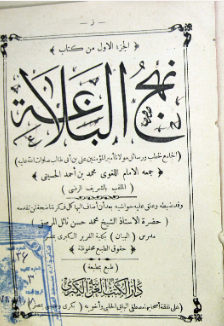 ﴿ الجزء الاول من كتاب ﴾
نهج البلاغة
الجامع لخطب ورسائل مولانا أمير المؤمنين على بن أبى طالب صلوات الله عليه
﴿ جمعه الامام اللغوى محمد بن أحمد الحسينى ﴾
( الملقب بالشريف الرضى )
حضرة الاستاذ الشيخ محمد حسن نائل المرصفى
مدرس ( البيان ) بكلية الفرير الكبرى بمصر
﴿ حقوق الطبع محفوظة ﴾
﴿ طبع بمطبعة ﴾
دار الكتب العربية الكبرى